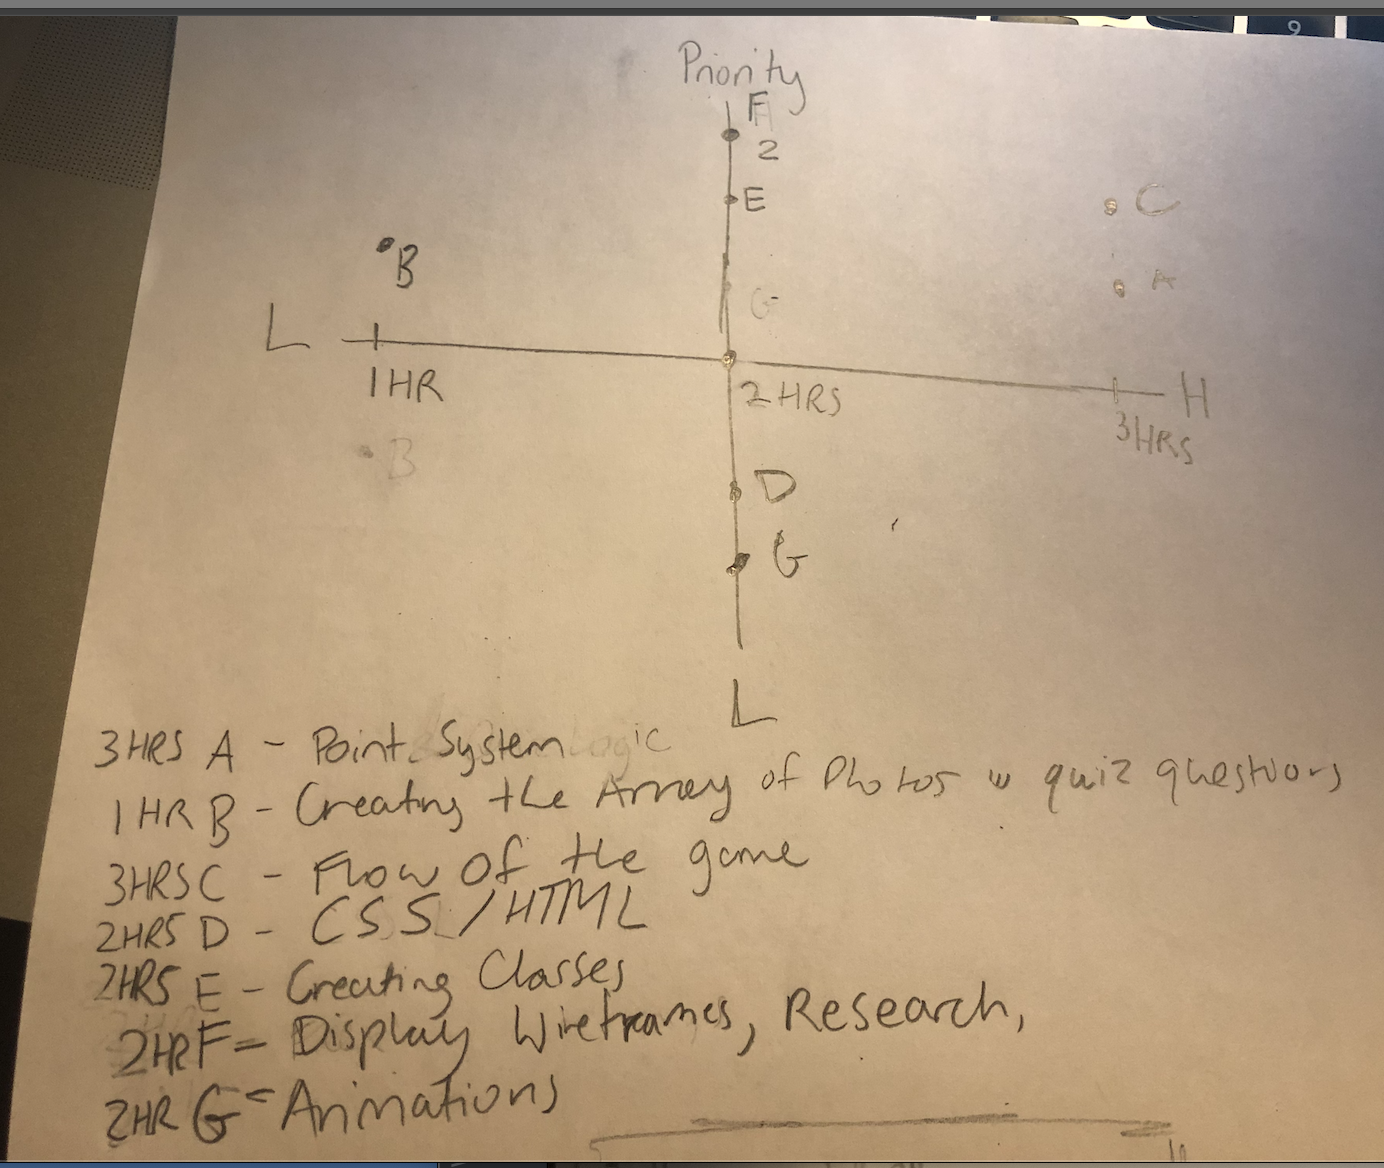 9
Priority
F
2
E
C
B
A
G
L
H
1HR
2HRS
3HRS
B
D
G
L
3HRS A - Point System Logic
1HR B - Creating the Array of Photos w quiz questions
3HRS C - Flow of the game
2HRS D - CSS / HTML
2HRS E - Creating Classes
2HR F = Display Wireframes, Research,
2HR G = Animations